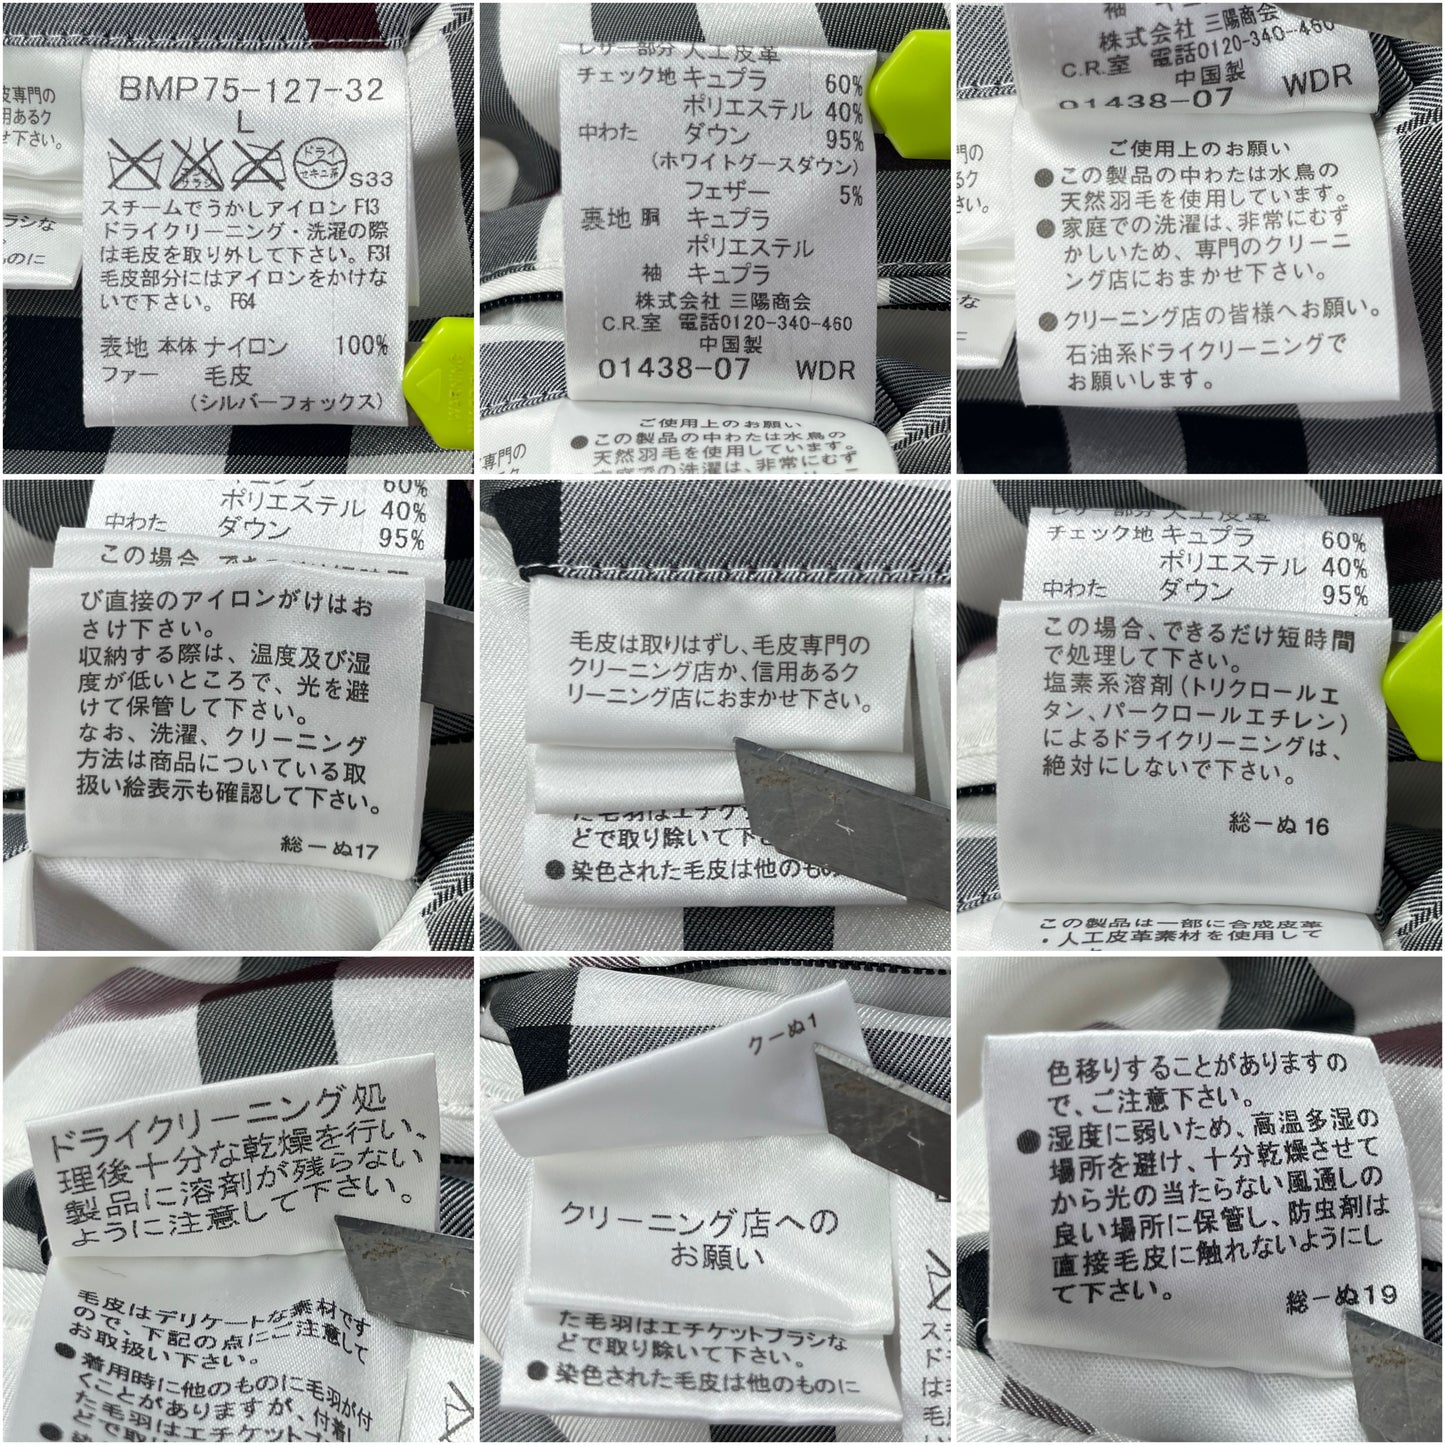 BMP75-127-32
L
ドライ
セキユ系
S33
スチームでうかしアイロン F13
ドライクリーニング・洗濯の際
は毛皮を取り外して下さい。F31
毛皮部分にはアイロンをかけな
いで下さい。 F64
表地 本体 ナイロン 100%
ファー 毛皮
(シルバーフォックス)
皮専門の
用あるク
せ下さい。
ラシな
ものに
レザー部分 人工皮革
チェック地 キュプラ 60%
ポリエステル 40%
中わた ダウン 95%
(ホワイトグースダウン)
フェザー 5%
裏地 胴 キュプラ
ポリエステル
袖 キュプラ
株式会社 三陽商会
C.R.室 電話0120-340-460
中国製
01438-07 WDR
ご使用上のお願い
●この製品の中わたは水鳥の
天然羽毛を使用しています。
家庭での洗濯は、非常にむず
専門の
株式会社 三陽商会
C.R.室 電話0120-340-460
中国製
01438-07 WDR
ご使用上のお願い
●この製品の中わたは水鳥の
天然羽毛を使用しています。
●家庭での洗濯は、非常にむず
かしいため、専門のクリーニ
ング店におまかせ下さい。
●クリーニング店の皆様へお願い。
石油系ドライクリーニングで
お願いします。
60%
ポリエステル 40%
中わた ダウン 95%
この場合
び直接のアイロンがけはお
さけ下さい。
収納する際は、温度及び湿
度が低いところで、光を避
けて保管して下さい。
なお、洗濯、クリーニング
方法は商品についている取
扱い絵表示も確認して下さい。
総ーぬ17
毛皮は取りはずし、毛皮専門の
クリーニング店か、信用あるク
リーニング店におまかせ下さい。
た毛羽はエチケット
どで取り除いて下
●染色された毛皮は他のもの
レザー部分 人工皮革
チェック地 キュプラ 60%
ポリエステル 40%
中わた ダウン 95%
この場合、できるだけ短時間
で処理して下さい。
塩素系溶剤(トリクロールエ
タン、パークロールエチレン)
によるドライクリーニングは、
絶対にしないで下さい。
総ーぬ16
この製品は一部に合成皮革
・人工皮革素材を使用して
ドライクリーニング処
理後十分な乾燥を行い、
製品に溶剤が残らない
ように注意して下さい。
毛皮はデリケートな素材です
ので、下記の点にご注意して
お取扱い下さい。
●着用時に他のものに毛羽が付
くことがありますが、付着し
た毛羽はエチケットブラ
どで取り除いて下さい
クーぬ1
クリーニング店への
お願い
た毛羽はエチケットブラシな
どで取り除いて下さい。
●染色された毛皮は他のものに
色移りすることがありますの
で、ご注意下さい。
●湿度に弱いため、高温多湿の
場所を避け、十分乾燥させて
から光の当たらない風通しの
良い場所に保管し、防虫剤は
直接毛皮に触れないようにし
て下さい。
総ーぬ19